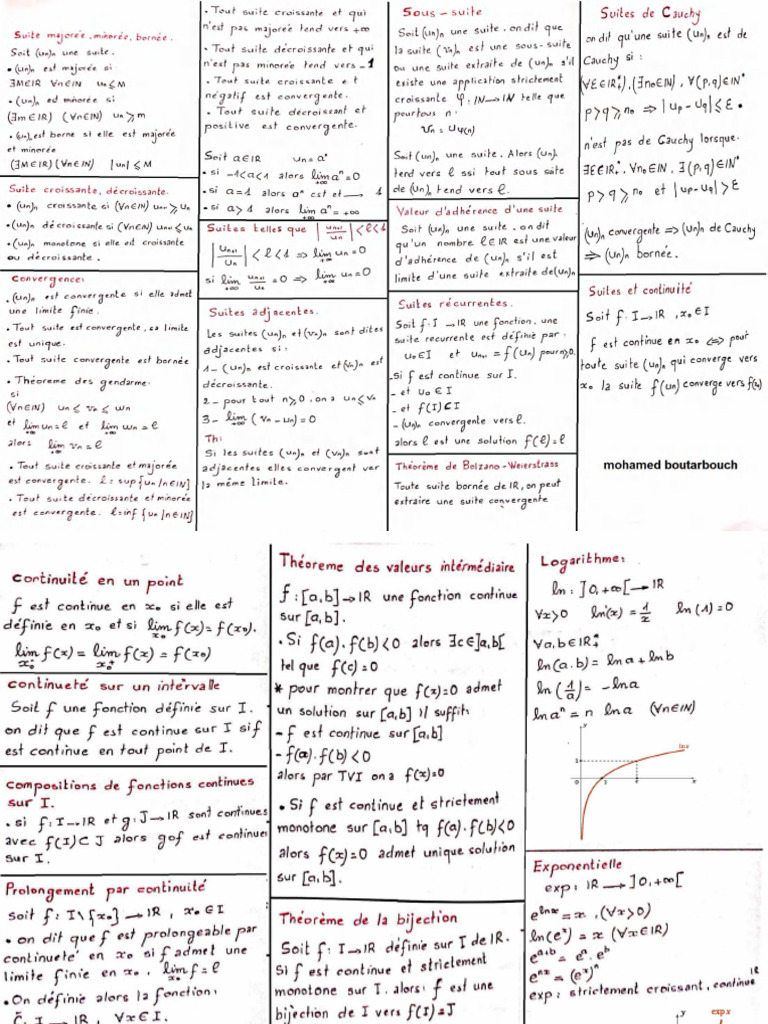 Suite majorée, minorée, bornée.
Soit (un)n une suite.
• (un)n est majorée si
∃M∈IR ∀n∈IN un ≤ M
• (un)n est minorée si
(∃m∈IR) (∀n∈IN) un ≥ m
• (un)n est borne si elle est majorée
et minorée
(∃M∈IR)(∀n∈IN) |un| ≤ M
Suite croissante, décroissante.
• (un)n croissante si (∀n∈IN) un+1 ≥ un
• (un)n décroissante si (∀n∈IN) un+1 ≤ un
• (un)n monotone si elle est croissante
ou décroissante.
Convergence:
• (un)n est convergente si elle admet
une limite finie.
• Tout suite est convergente, sa limite
est unique.
• Tout suite convergente est bornée
• Théorème des gendarme.
si
(∀n∈IN) un ≤ vn ≤ wn
et lim+∞ un = l et lim+∞ wn = l
alors lim+∞ vn = l
• Tout suite croissante et majorée
est convergente. l = sup{un/n∈IN]
• Tout suite décroissante et minorée
est convergente. l = inf{un/n∈IN]
• Tout suite croissante et qui
n'est pas majorée tend vers +∞
• Tout suite décroissante et qui
n'est pas minorée tend vers -1
• Tout suite croissante et
négatif est convergente.
• Tout suite décroissant et
positive est convergente.
Soit a∈IR un = aⁿ
• si -1<a<1 alors lim+∞ aⁿ = 0
• si a=1 alors aⁿ cst et → 1
• si a>1 alors lim+∞ aⁿ = +∞
Suites telles que |un+1/un| < l < 1
|un+1/un| < l < 1 ⇒ lim+∞ un = 0
si lim+∞ un+1/un = 0 ⇒ lim+∞ un = 0
Suites adjacentes.
Les suites (un)n et (vn)n sont dites
adjacentes si:
1 – (un)n est croissante et (vn)n est
décroissante.
2 – pour tout n≥0, on a un ≤ vn
3 – lim+∞ (vn – un) = 0
Th:
Si les suites (un)n et (vn)n sont
adjacentes elles convergent ver
la même limite.
Sous – suite
Soit (un)n une suite. on dit que
la suite (vn)n est une sous-suite
ou une suite extraite de (un)n s'il
existe une application strictement
croissante φ: IN → IN telle que
pour tous n:
vn = uφ(n)
Soit (un)n une suite. Alors (un)n
tend vers l ssi tout sous suite
de (un)n tend vers l.
Valeur d'adhérence d'une suite
Soit (un)n une suite. on dit
qu'un nombre l∈IR est une valeur
d'adhérence de (un)n s'il est
limite d'une suite extraite de (un)n
Suites récurrentes.
Soit f: I → IR une fonction, une
suite recurrente est définie par:
u0∈I et un+1 = f(un) pour n≥0.
– si f est continue sur I.
– et u0∈I
– et f(I)⊂I
– (un)n convergente vers l.
alors l est une solution f(l) = l
Théorème de Bolzano – Weierstrass
Toute suite bornée de IR, on peut
extraire une suite convergente
Suites de Cauchy
on dit qu'une suite (un)n est de
Cauchy si:
(∀ε∈IR*+), (∃n0∈IN), ∀(p,q)∈IN²
p > q ≥ n0 ⇒ |up – uq| ≤ ε •
n'est pas de Cauchy lorsque.
∃ε∈IR*, ∀n0∈IN, ∃(p,q)∈IN²
p > q ≥ n0 et |up – uq| > ε
(un)n convergente ⇒ (un)n de Cauchy
⇒ (un)n bornée.
Suites et continuité
Soit f: I → IR, x0∈I
f est continue en x0 ⇔ pour
toute suite (un)n qui converge vers
x0 la suite f(un) converge vers f(x0)
mohamed boutarbouch
continuité en un point
f est continue en x0 si elle est
définie en x0 et si lim x0 f(x) = f(x0).
lim x0⁻ f(x) = lim x0⁺ f(x) = f(x0)
continueté sur un intervalle
Soit f une fonction définie sur I.
on dit que f est continue sur I si f
est continue en tout point de I.
compositions de fonctions continues
sur I.
• si f: I → IR et g: J → IR sont continues
avec f(I)⊂J alors gof est continue
sur I.
Prolongement par continuité
soit f: I\{x0} → IR, x0∈I
• on dit que f est prolongeable par
continueté en x0 si f admet une
limite finie en x0. lim x0 f = l
• On définie alors la fonction:
f̃: I → IR, ∀x∈I.
Théoreme des valeurs intérmédiaire
f: [a,b] → IR une fonction continue
sur [a,b].
• Si f(a).f(b)<0 alors ∃c∈]a,b[
tel que f(c) = 0
* pour montrer que f(x)=0 admet
un solution sur [a,b] il suffit:
– f est continue sur [a,b]
– f(a).f(b)<0
alors par TVI on a f(x)=0
• Si f est continue et strictement
monotone sur [a,b] tq f(a).f(b)<0
alors f(x)=0 admet unique solution
sur [a,b].
Théorème de la bijection
Soit f: I → IR définie sur I de IR.
Si f est continue et strictement
monotone sur I. alors: f est une
bijection de I vers f(I)=J
Logarithme:
ln: ]0,+∞[ → IR
∀x>0 ln'(x) = 1/x ln(1)=0
∀a,b∈IR*+
ln(a.b) = ln a + ln b
ln(1/a) = –ln a
ln aⁿ = n ln a (∀n∈IN)
y
ln x
1
0 1 e x
Exponentielle
exp: IR → ]0,+∞[
e^lnx = x, (∀x>0)
ln(e^x) = x (∀x∈IR)
e^a+b = e^a. e^b
e^nx = (e^x)^n
exp: strictement croissant, continue IR
y exp x